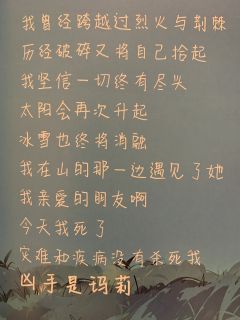 我曾经跨越过烈火与荆棘
历经破碎又将自己拾起
我坚信一切终有尽头
太阳会再次升起
冰雪也终将消融
我在山的那一边遇见了她
我亲爱的朋友啊
今天我死了
灾难和疾病没有杀死我
凶手是玛莉